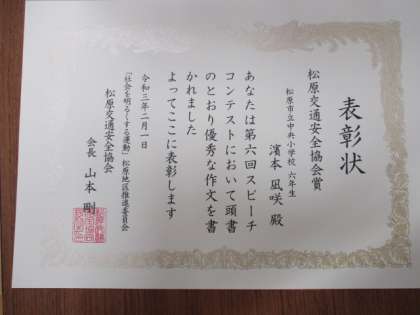 表彰状
松原交通安全協会賞
松原市立中央小学校 六年生
濱本 凪咲 殿
あなたは第六回スピーチ
コンテストにおいて頭書
のとおり優秀な作文を書
かれました
よってここに表彰します
令和三年二月一日
「社会を明るくする運動」松原地区推進委員会
松原交通安全協会
会長 山本 剛